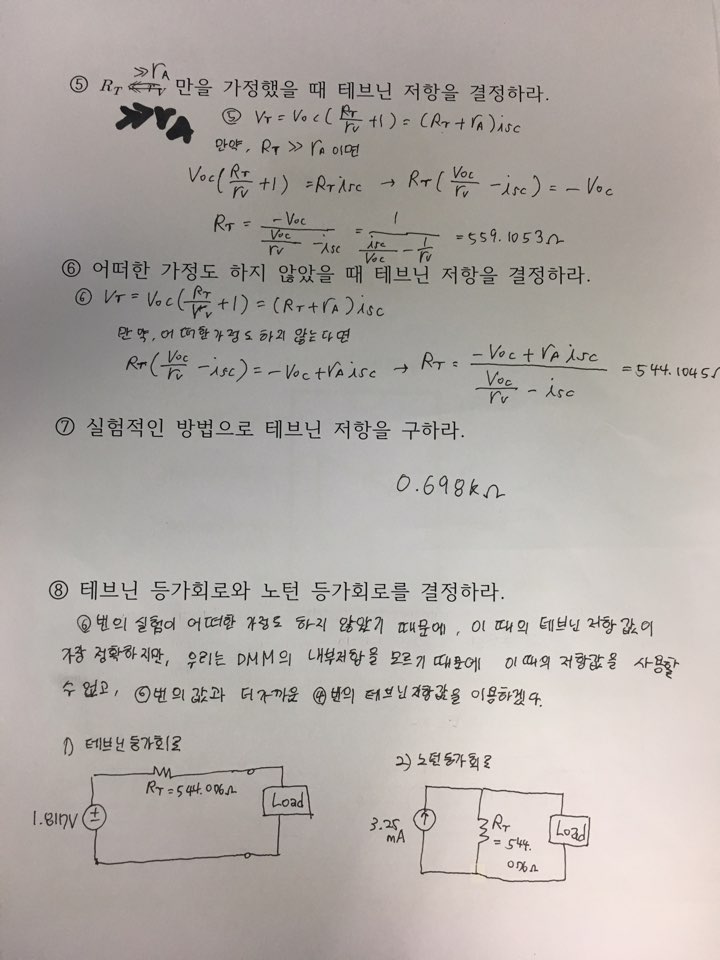 ≫rA
⑤ RT 만을 가정했을 때 테브닌 저항을 결정하라.
≫rA
⑤ VT = Voc(RT/rV + 1) = (RT + rA)isc
만약, RT ≫ rA 이면
Voc(RT/rV + 1) = RT isc → RT(Voc/rV - isc) = -Voc
RT = -Voc/(Voc/rV - isc) = 1/(isc/Voc - 1/rV) = 559.1053Ω
⑥ 어떠한 가정도 하지 않았을 때 테브닌 저항을 결정하라.
⑥ VT = Voc(RT/rV + 1) = (RT + rA)isc
만약, 어떠한 가정도 하지 않는다면
RT(Voc/rV - isc) = -Voc + rA isc → RT = (-Voc + rA isc)/(Voc/rV - isc) = 544.1045Ω
⑦ 실험적인 방법으로 테브닌 저항을 구하라.
0.698kΩ
⑧ 테브닌 등가회로와 노턴 등가회로를 결정하라.
⑥번의 실험이 어떠한 가정도 하지 않았기 때문에, 이 때의 테브닌 저항 값이
가장 정확하지만, 우리는 DMM의 내부저항을 모르기 때문에 이때의 저항값을 사용할
수 없고, ⑥번의 값과 더 가까운 ④번의 테브닌저항값을 이용하겠다.
1) 테브닌 등가회로
RT = 544.076Ω
Load
1.817V
2) 노턴등가회로
3.25
mA
RT
= 544.
076Ω
Load